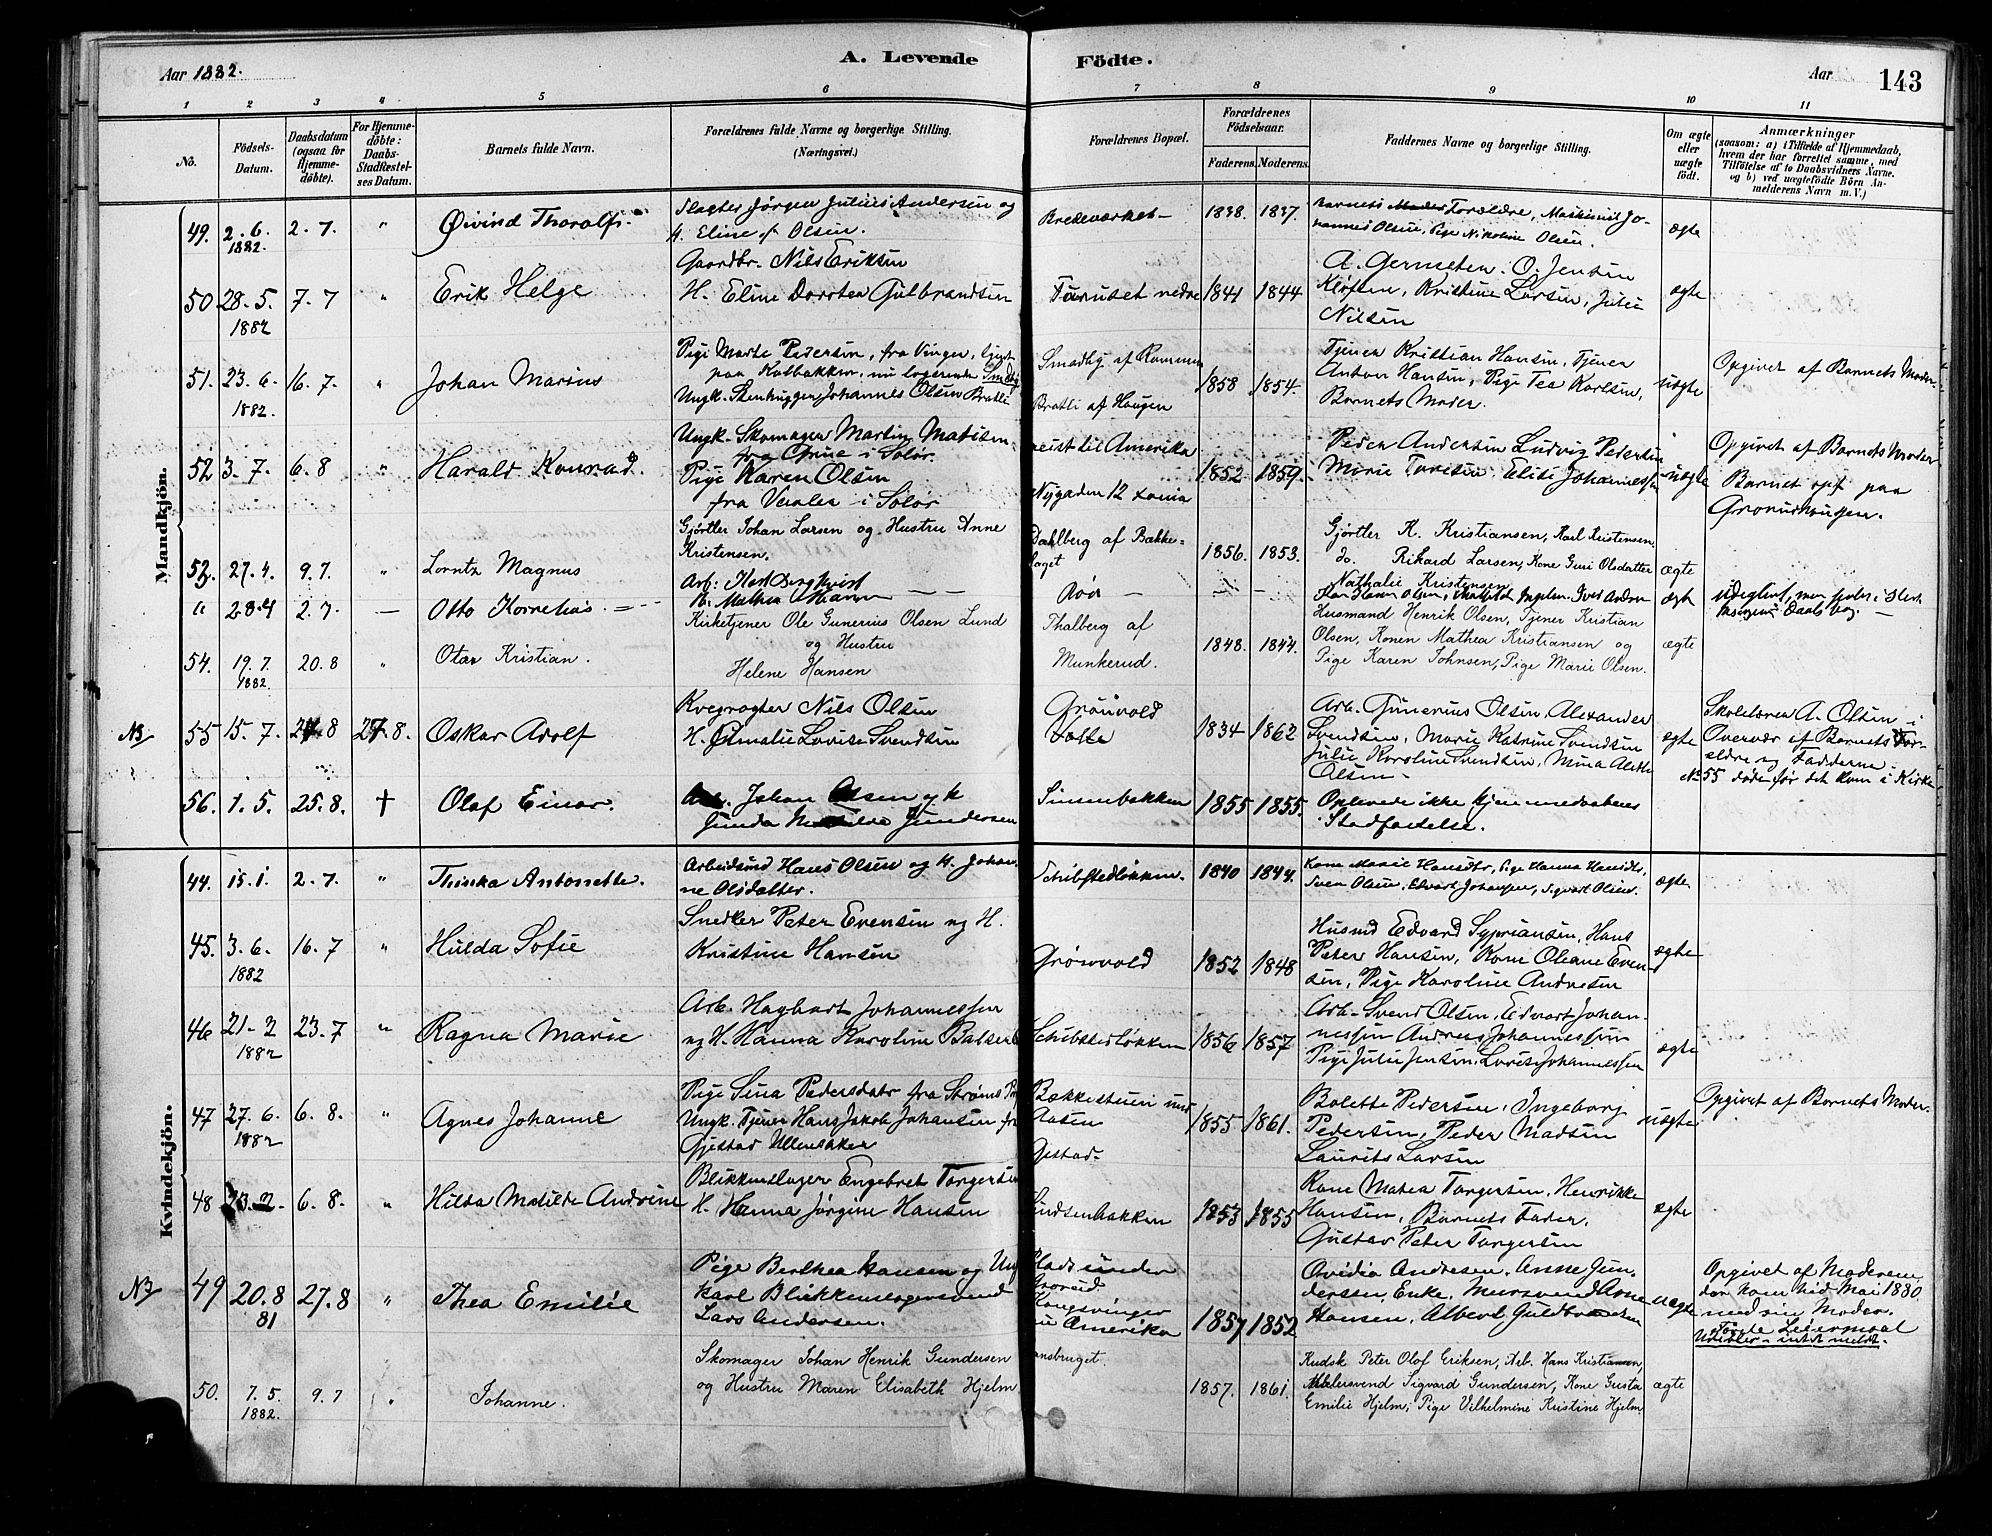 Aar 1882.
A. Levende Födte.
Aar 143
1 2 3 4 5 6 7 8 9 10 11
No.
Födsels-Datum.
Daabsdatum (ogsaa for Hjemme-döbte).
For Hjemme-döbte: Daabs-Stadfæstel-ses Datum.
Barnets fulde Navn.
Forældrenes fulde Navne og borgerlige Stilling. (Næringsvei.)
Forældrenes Bopæl.
Forældrenes Födselsaar.
Faderens. Moderens.
Faddernes Navne og borgerlige Stilling.
Om ægte eller uægte födt.
Anmærkninger
(saasom: a) i Tilfælde af Hjemmedaab, hvem der har forrettet samme, med Tilföielse af to Daabsvidners Navne, og b) ved uægtefödte Börn An-melderens Navn m. V.)
Mandkjön.
49. 2.6. 1882 2.7. " Øivind Thoralf. Slagter Jørgen Julius Andersen og H. Eline Olsen. Bredeverket 1838. 1837. Barnets Forældre, Maskinist Jo-hannes Olsen, Pige Nikoline Olsen. ægte
50 28.5. 1882 7.7 " Erik Helge Gaardbr. Nils Eriksen H. Eline Dorthea Gulbrandsen Tørtuset nedre 1841 1844 O. Jensen Kløften, Kristine Larsen, Julie Nilsen ægte
51. 23.6. 1882. 16.7. " Johan Marius Pige Marte Pedersen, fra Vinger, paa Kalbakken, nu logerende Smedby Ungk. Stenhugger Johannes Olsen Bratli Smedby af Rommen Bratli af Haugen 1858 1854. Tjener Kristian Hansen, Tjener Anton Hansen, Pige Tea Karlsen, Barnets Moder. uægte Opgivet af Barnets Moder.
52 3.7. 6.8 " Harald Konrad. Ungk. Skomager Martin Matisen fra Grue i Solør. Pige Karen Olsen fra Vaaler i Solør reist til Amerika Nygaden 12 1852 1859. Peder Andersen Ludvig Pedersen Marie Elise Johannessen uægte Opgivet af Barnets Moder Barnet opf paa Grorudhaugen.
52. 27.4. 9.7. " Lorntz Magnus Gjørtler Johan Larsen og Hustru Anne Kristensen. Dahlberg af Bække-laget 1856. 1853. Gjørtler K. Kristiansen, Karl Kristensen, do. Rikard Larsen, Kone Guri Olsdatter Nathalie Kristensen ægte
" 28.4 2.7. — Otto Kornelius. Arb. Karl Bergkvist H. Mathea Røa — — ægte
54. 19.7. 1882 20.8 " Otar Kristian. Kirketjener Ole Gunerius Olsen Lund og Hustru Helene Hansen Thalberg af Munkerud. 1848. 1844. Husmand Henrik Olsen, Tjener Kristian Olsen, Konen Mathea Kristiansen og Pige Karen Johnsen, Pige Marie Olsen. ægte
NB 55 15.7. 27.8 27.8. Oskar Adolf Kvegrøgter Nils Olsen H. Amalie Lovise Svendsen Grønvold 1834 1862 Arb. Gunerius Olsen, Alexander Svendsen, Marie Katrine Svendsen Julie Karoline Svendsen, Mina Alette Olsen. ægte Skolelærer A. Olsen i Overvær af Barnets For-ældre og Fadderne. No 55 døde før det kom i Kirke
56. 1.5. 25.8. † Olaf Einar. Arb. Johan Olsen og H Gunda Matilde Gundersen Sinsenbakken 1855 1855. Oplevede ikke Hjemmedaabens Stadfæstelse.
Kvindekjön.
44. 15.1. 2.7. " Thinka Antonette. Arbeidsmd Hans Olsen og H. Johan-ne Olsdatter. Schibstedløkken. 1840 1844. Kone Marie Hansdtr, Pige Hanna Hansdtr, Sven Olsen, Edvart Johansen, Sigvart Olsen. ægte
45. 3.6. 1882 16.7 " Hulda Sofie Snedker Peter Evensen og H. Kristine Hansen Grønvold 1852 1848 Husmd Edvard Sypriansen, Hans Peter Hansen, Kone Oleane Even-sen, Pige Karoline Andresen ægte
46 21-2 1882 23.7 " Ragna Marie Arb. Hagbart Johannessen og H. Hanna Karoline Schibstedløkken 1856 1857 Arb. Svend Olsen, Edvart Johan-nessen Andreas Johannessen Pige Julie Jensen, Lovise Johannessen ægte
47 27.6. 1882 6.8. " Agnes Johanne Pige Sina Pedersdatr fra Strøms Ungk. Tjener Hans Jakob Johansen fra Gjestad Ullensaker Bækkestuen und Aasen Gjestad. 1855 1861. Bolette Pedersen, Ingeborg Pedersen, Peder Madsen Laurits Larsen uægte Opgivet af Barnets Moder.
48 23.2. 6.8. " Hilda Matilde Andrine Blikkenslager Engebret Torgersen H. Hanna Jørgine Hansen Sindsenbakken 1853 1855 Kone Matea Torgersen, Henrikke Hansen, Barnets Fader, Gustav Peter Torgersen ægte
NB 49 20.8 81 27.8 " Thea Emilie Pige Berthea Hansen og Ungk Karl Blikkenslagersvend Lars Andersen. Plads under Grorud Kongsvinger nu Amerika 1857 1852 Ovidia Andresen, Anne Gun-dersen, Enke, Mursvend Arne Hansen, Albert Guldbrandsen uægte Opgivet af Moderen, der kom hid Mai 1880 med sin Moder. Første Leiermaal
50. 7.5. 1882. 9.7 " Johanne. Skomager Johan Henrik Gundersen og Hustru Maren Elisabeth Hjelm 1857. 1861. Kudsk Peter Olof Eriksen, Arb. Hans Kristiansen, Malersvend Sigvard Gundersen, Kone Gusta Emilie Hjelm, Pige Vilhelmine Kristine Hjelm. ægte